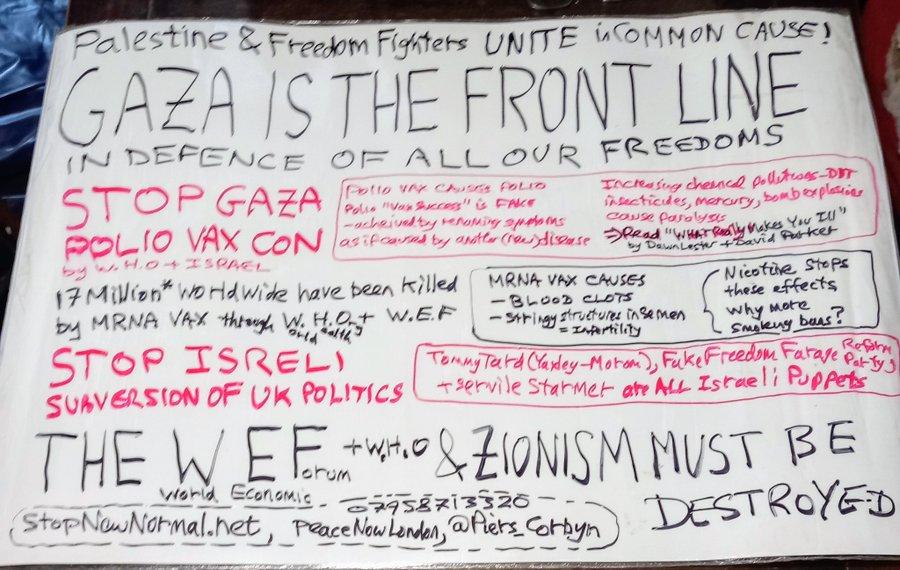 Palestine & Freedom Fighters UNITE in COMMON CAUSE!
GAZA IS THE FRONT LINE
IN DEFENCE OF ALL OUR FREEDOMS
STOP GAZA
POLIO VAX CON
by W.H.O + ISRAEL
POLIO VAX CAUSES POLIO
Polio "Vax Success" is FAKE
- acheived by renaming symptoms
as if caused by another (new) disease
Increasing chemical pollutions - DDT
insecticides, mercury, bomb explosions
cause paralysis
⇒ Read "WHAT Really Makes You Ill"
by Dawn Lester + David Parker
17 Million* worldwide have been killed
by MRNA VAX through W.H.O + W.E.F
World Health
MRNA VAX CAUSES
- BLOOD CLOTS
- Stringy structures in Semen
= Infertility
Nicotine Stops
these effects
Why more
Smoking bans?
STOP ISRELI
SUBVERSION OF UK POLITICS
Tommy Tard (Yaxley-Moron), Fake Freedom Farage Reform Party
+ servile Starmer are ALL Israeli Puppets
THE WEForum + W.H.O & ZIONISM MUST BE
World Economic
DESTROYED
07958713320
StopNewNormal.net, PeaceNowLondon, @Piers_Corbyn